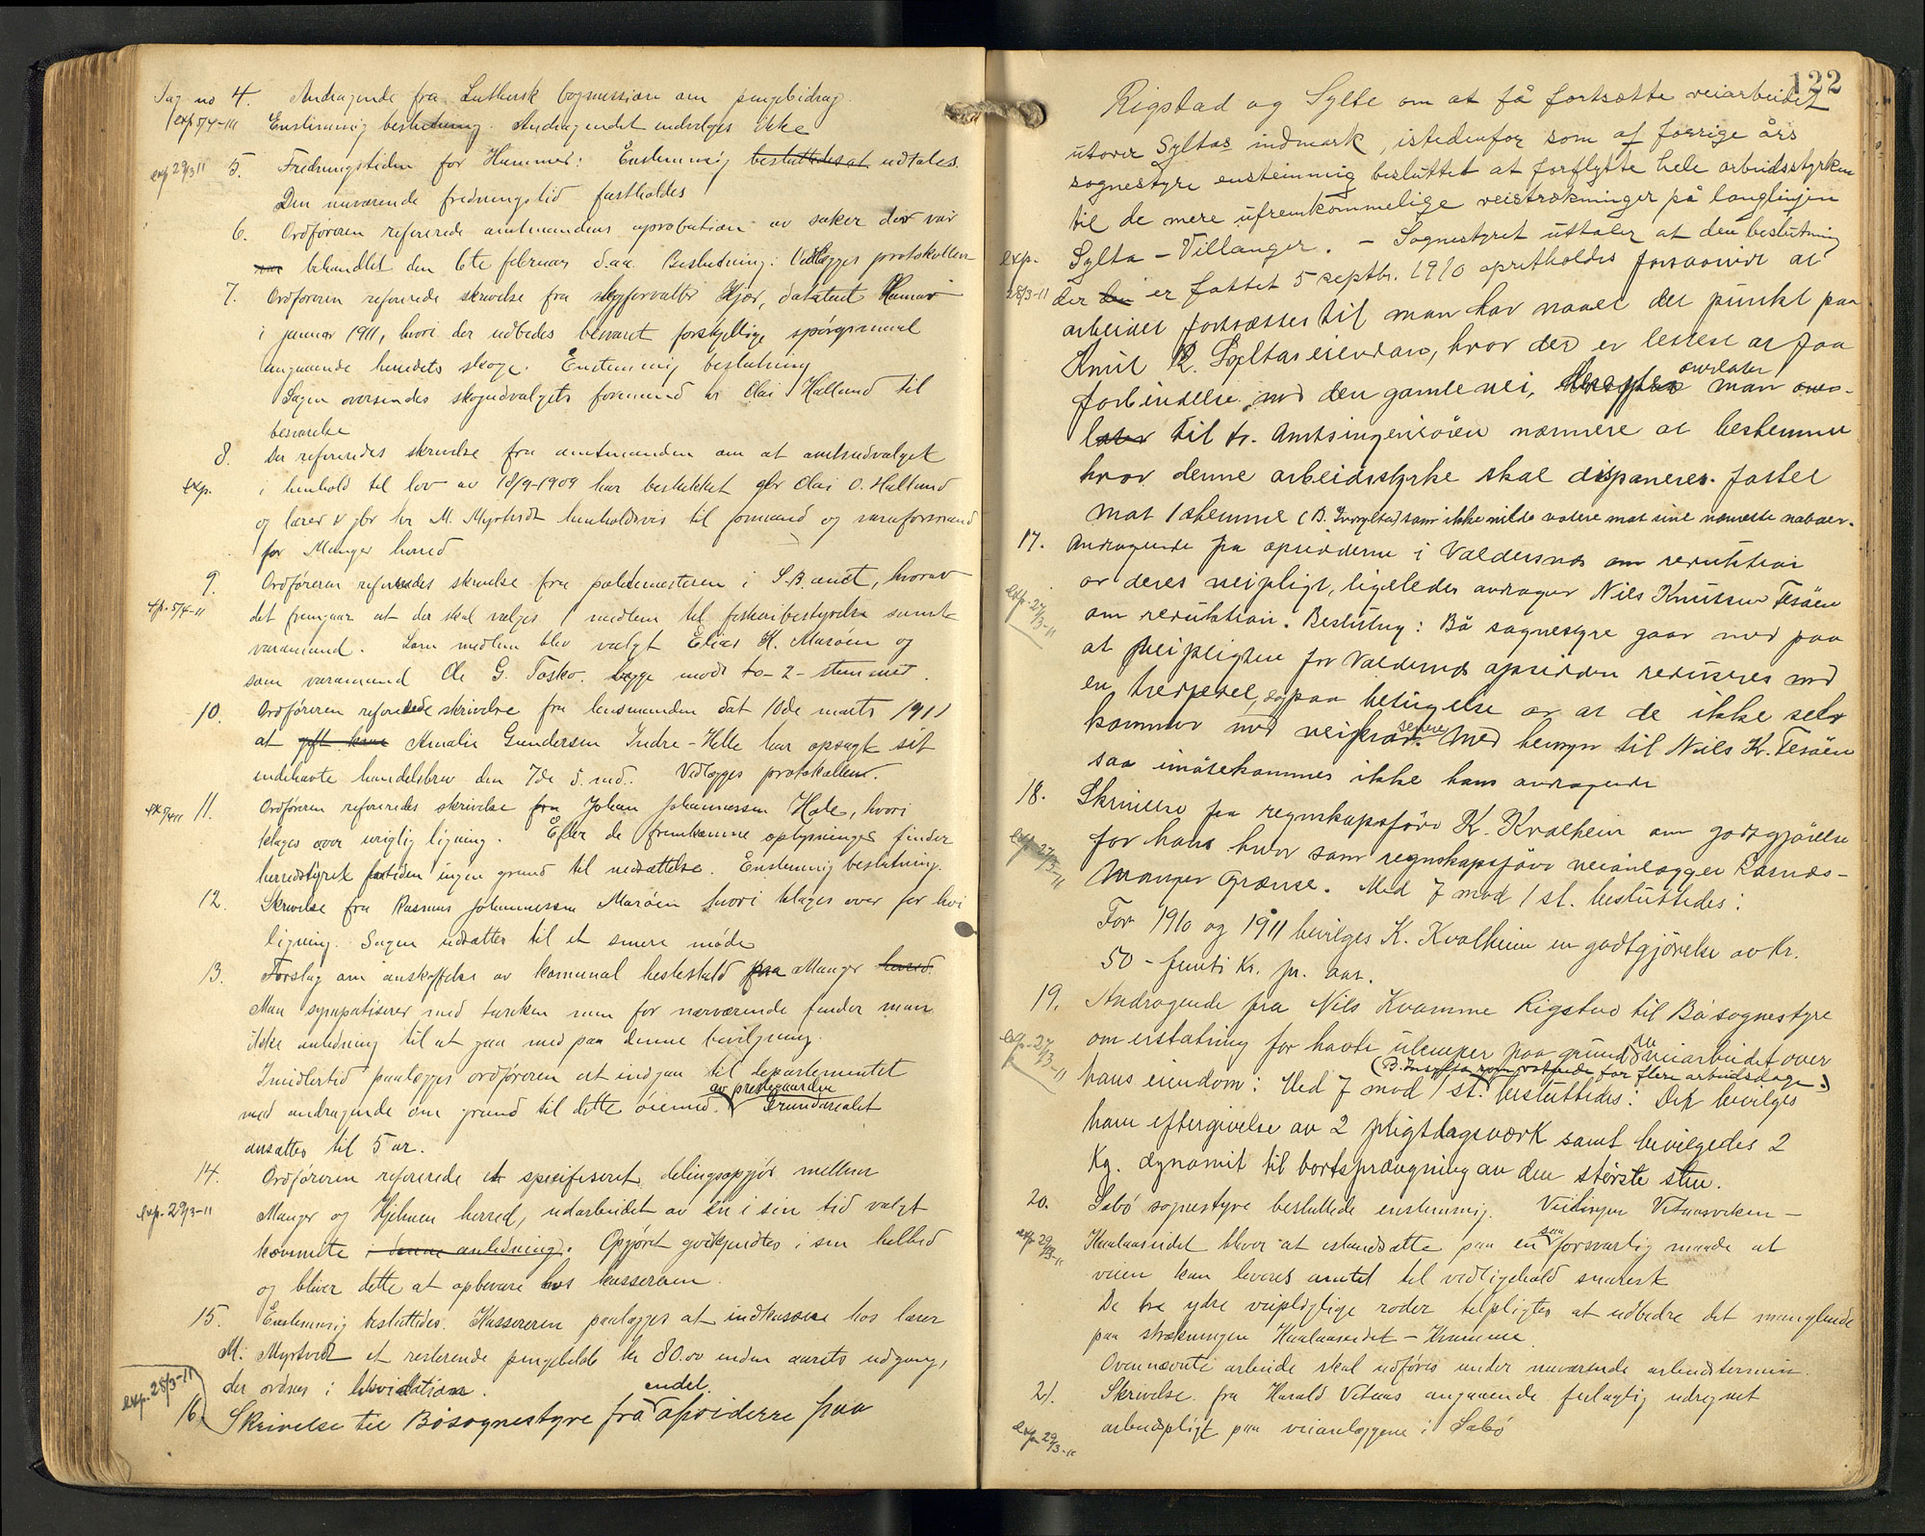 Sag no 4. Andragende fra Luthersk bogmission om pengebidrag.
exp 5/4-11 Enstemmig beslutning. Andragendet indvilges ikke
exp 29/3 11 5. Fredningstiden for Hummer: Enstemmig besluttedes at udtales.
Den nuværende fredningstid fastholdes
6. Ordføreren refererede amtmandens aprobation av saker der var
behandlet den 6te februar d.aa. Beslutning: Vedlægges protokollen
7. Ordføreren refererede skrivelse fra skogforvalter Kjær, datatert Hamar
i januar 1911, hvori der udbedes besvaret forskjellige spørgsmaal
angaaende herredets skoge. Enstemmig beslutning
Sagen oversendes skogudvalgets formand hr Clai Halland til
besvarelse
8. Der refereredes skrivelse fra amtmanden om at amtsudvalget
exp. i henhold til lov av 18/9-1909 har beskikket gbr Clai O. Halland
og lærer & gbr hr M. Myrtvedt henholdsvis til formand og varaformand
for Manger herred
9. Ordføreren refereredes skrivelse fra politimesteren i S.B. amt, hvorav
exp. 5/4-11 det fremgaar at der skal vælges 1 medlem til fiskeribestyrelse samt
varamand. Som medlem blev valgt Elias H. Marøen og
som varamand Ole G. Toska. begge mod to -2- stemmer.
10. Ordføreren refererede skrivelse fra lensmanden dat 10de marts 1911
at gift kone Amalie Gundersen Indre-Helle har opsagt sit
indehavte handelsbrev den 7de d. md. Vedlægges protokollen.
ex 5/4 11 11. Ordføreren refereredes skrivelse fra Johan Johannessen Hole, hvori
klages over urigtig ligning. Efter de fremkomne oplysninger finder
herredstyret fortiden ingen grund til nedsættelse. Enstemmig beslutning.
12. Skrivelse fra Rasmus Johannessen Marøen hvori klages over for høi
ligning. Sagen udsættes til et senere møde
13. Forslag om anskaffelse av komunal hestestald paa Manger herred.
Man sympatiserer med tanken men for nærværende finder man
ikke anledning til at gaa med paa denne bevilgning.
Imidlertid paalægges ordføreren at indgaa til departementet
av prestegaarden
med andragende om grund til dette øiemed. Grundarealet
ansættes til 5 ar.
14. Ordføreren refererede et spesifiseret delingsopgjør mellem
exp. 29/3-11 Manger og Hjelmen herred, udarbeidet av en i sin tid valgt
komite i denne anledning. Opgjøret godkjendtes i sin helhed
og bliver dette at opbevare hos kassereren.
15. Enstemmig besluttedes. Kassereren paalægges at indkassere hos lærer
M. Myrtvedt et resterende pengebeløb kr 80.00 inden aarets udgang,
der ordnes i likvidation.
exp. 25/3-11 endel
16. Skrivelse til Bøsognestyre fra opsiderre paa
122
Rigstad og Sylte om at få fortsætte veiarbeidet
utover Syltas indmark, istedenfor som af forrige års
sognestyre ensteimmig besluttet at forflytte hele arbeidsstyrken
til de mere ufremkommelige veistrækninger på langlinjen
exp. Sylta - Villanger. - Sognestyret uttaler at den beslutning
28/3-11 der den er fattet 5 septbr. 1910 opretholdes forsaavidt at
arbeidet fortsættes til man har naaet det punkt paa
Knut R. Syltas eiendom, hvor der er lettest at faa
overlater
forbindelse med den gamle vei, hvorefter man over-
later til hr. Amtsingeniøren nærmere at bestemme
hvor denne arbeidsstyrke skal disponeres. fattet
mot 1 stemme (B. Indrylta som ikke vilde votere mot sine nærmeste naboer.
17. Andragende fra opsidderne i Valdersnes om reduktion
exp. 27/3-11 av deres veipligt, ligeledes andrager Nils Knutsen Tesøen
om reduktion. Beslutng: Bø sognestyre gaar med paa
at veipligten for Valdersnes opsidder reduseres med
en tredjedel, og paa betingelse av at de ikke selv
senere
kommer med veikrav. Med hensyn til Nils Kr. Tesøen
saa imøtekommes ikke hans andragende
18. Skrivelse fra regnskapsfører K. Kvalheim om godtgjørelse
exp. 27/3-11 for hans hverv som regnskapsfører veianlægget Rasnæs-
Manger Grænse. Med 7 mod 1 st. besluttedes:
For 1910 og 1911 bevilges K. Kvalheim en godtgjørelse av Kr.
50 - femti Kr. pr. aar.
19. Andragende fra Nils Kvamme Rigstad til Bø sognestyre
exp. 27/3-11 om erstatning for havte ulemper paa grund av veiarbeidet over
(B. Indrylta som votrede for flere arbeidsdage)
hans eiendom: Med 7 mod 1 st. besluttedes: Der bevilges
ham eftergivelse av 2 pligtdagsværk samt bevilgedes 2
Kg. dynamit til bortsprængning av den største sten.
20. Sæbø sognestyre besluttede enstemmig. Veilinjen Vetaasviken -
exp 29/3-11 Haalaasvidet bliver at istandsætte paa en saa forsvarlig maade at
veien kan leveres amtet til vedligehold snarest
De tre ydre veipligtige roder tilpligtes at udbedre det manglende
paa strækningen Haalaaseidet - Kvamme
Ovennævnte arbeide skal udføres under nuværende arbeidstermin.
21. Skrivelse fra Harald Vetaas angaaende feilagtig udregnet
exp 29/3-11 arbeidspligt paa veianlæggene i Sæbø